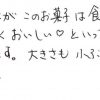 が このお菓子は食
くおいしい♡といっ
す。大きさも 小ぶ